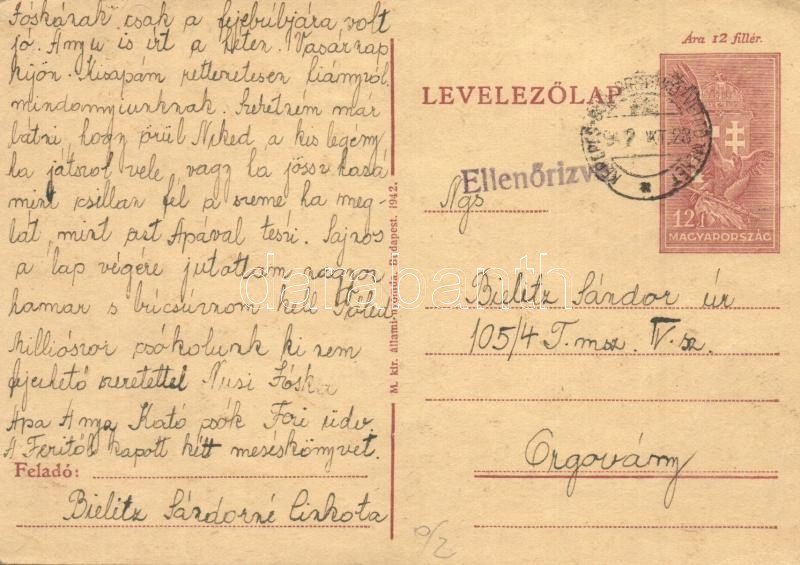 Jóskának csak a fejebúbjára volt
jó. Anyu is írt a héten. Vasárnap
kijön. Kisapám rettenetesen hiányzol
mindannyiunknak. Szeretném már
látni, hogy örül Neked a kis legény
ha játszol vele vagy ha jössz haza
mint csillan fel a szeme ha meg-
lát, mint azt Apával teszi. Sajnos
a lap végére jutottam nagyon
hamar s búcsúznom kell Tőled
Milliószor csókolunk ki nem
fejezhető szeretettel Nusi Jóska
Apa Anya Kató csók Feri üdv.
A Feritől kapott két meséskönyvet.
Feladó:
Bielitz Sándorné Cinkota
M. kir. állami nyomda, Budapest. 1942.
Ára 12 fillér.
LEVELEZŐLAP
Ellenőrizve
942 OKT. 23
12f
MAGYARORSZÁG
Ngs
Bielitz Sándor úr
105/4 T. msz. IV. sz.
Orgovány
darabanth